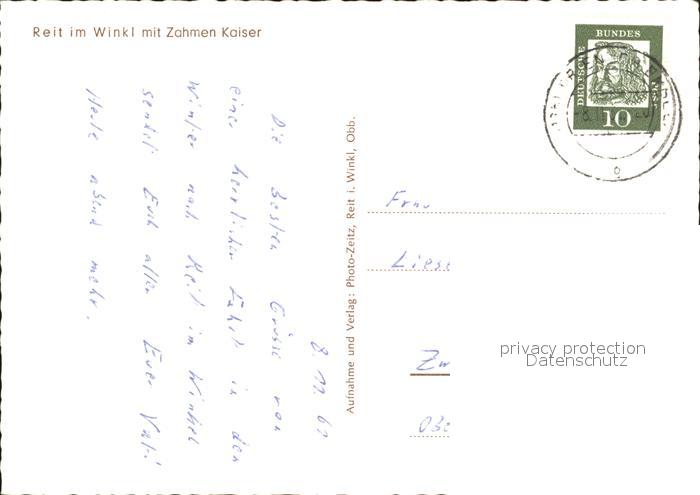 Reit im Winkl mit Zahmen Kaiser
DEUTSCHE
BUNDES
POST
10
8. 12. 61
Die besten Grüsse von
einer herrlichen Fahrt in den
Winter nach Reit im Winkel
sendet Euch allen Euer Vati
Heute abend mehr.
Aufnahme und Verlag: Photo-Zeitz, Reit i. Winkl, Obb.
Frau
Liese
Zw
Obe
privacy protection
Datenschutz